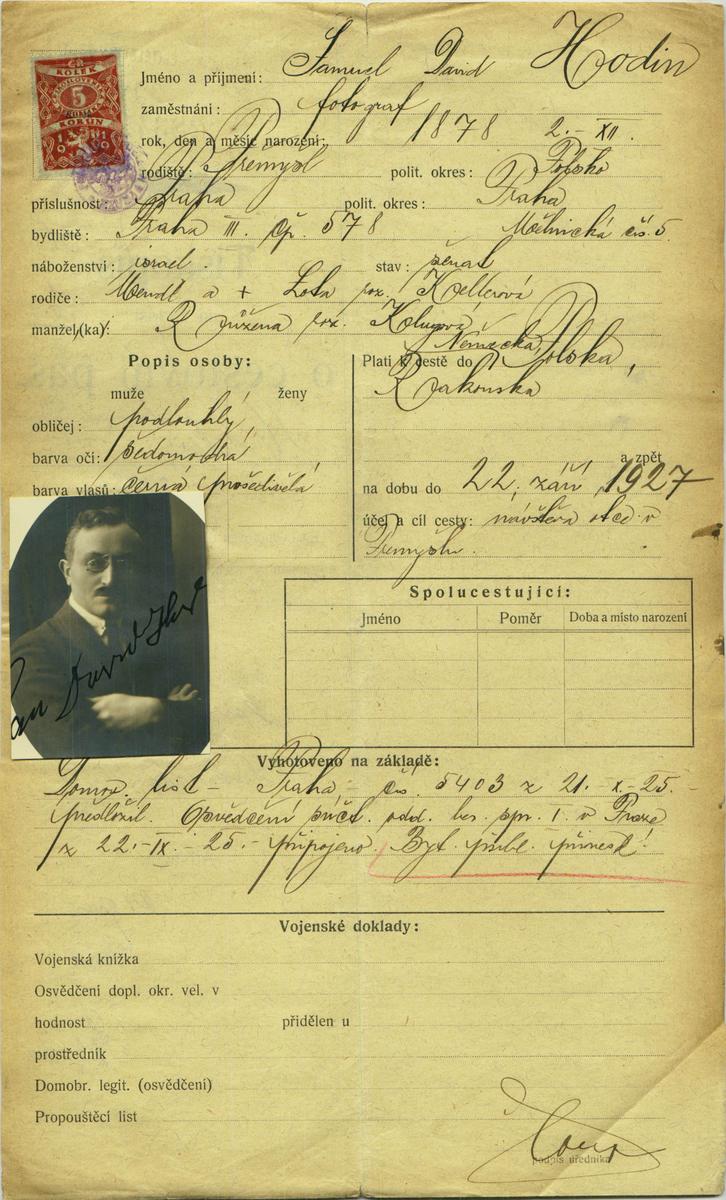 KOLEK
5
KORUN
1919
Jméno a příjmení: Samuel David Hodin
zaměstnání: fotograf
rok, den a měsíc narození: 1878 2. XII.
rodiště: Přemysl polit. okres: Polsko
příslušnost: Praha polit. okres: Praha
bydliště: Praha III. čp. 578 Mělnická čís. 5.
náboženství: israel. stav: ženat
rodiče: Mendl a + Lota roz. Kellerová
manžel(ka): Růžena roz. Klugová
Popis osoby:
muže ženy
obličej: podlouhlý
barva očí: šedomodrá
barva vlasů: černá prošedivělá
Platí k cestě do Německa, Polska,
Rakouska
a zpět
na dobu do 22. září 1927
účel a cíl cesty: návštěva otce v
Přemyslu.
Spolucestující:
Jméno Poměr Doba a místo narození
David
Vyhotoveno na základě:
Domov. list - Praha, čís. 5403 z 21. X. 25. -
předložil. Osvědčení súčt. odd. ber. spr. I. v Praze
z 22. - IX. - 25. - připojeno.
Vojenské doklady:
Vojenská knížka
Osvědčení dopl. okr. vel. v
hodnost přidělen u
prostředník
Domobr. legit. (osvědčení)
Propouštěcí list
podpis úředníka